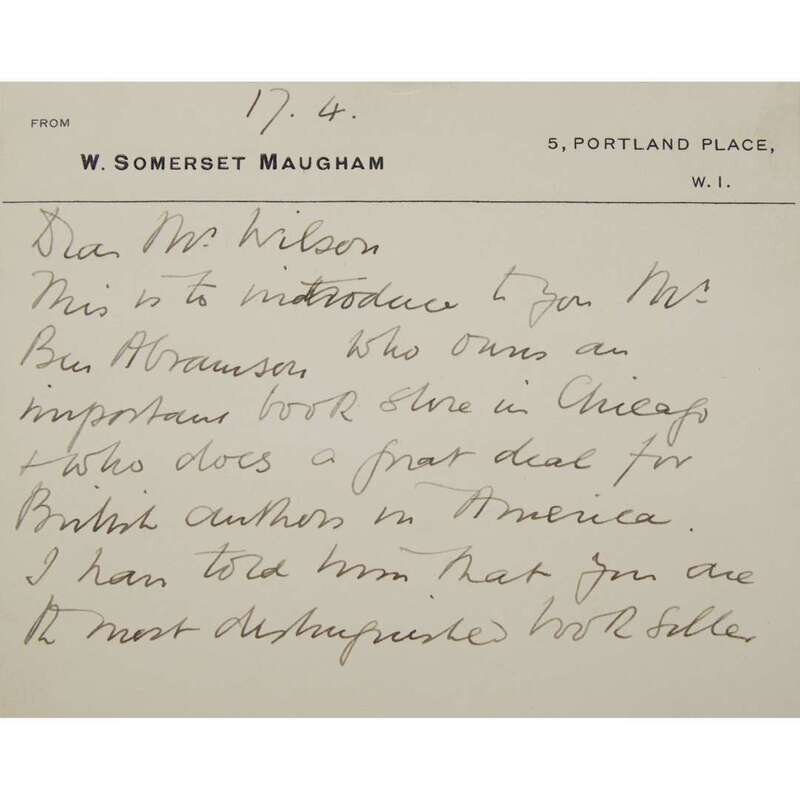 17. 4.
FROM
W. SOMERSET MAUGHAM
5, PORTLAND PLACE,
W. 1.
Dear Mr Wilson
This is to introduce to you Mr
Ben Abramson who owns an
important book store in Chicago
+ who does a great deal for
British authors in America.
I have told him that you are
the most distinguished book seller